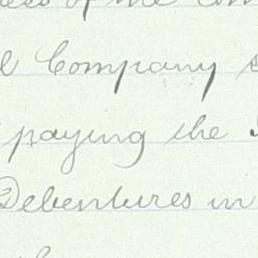 of the
Company
paying the
Debentures in